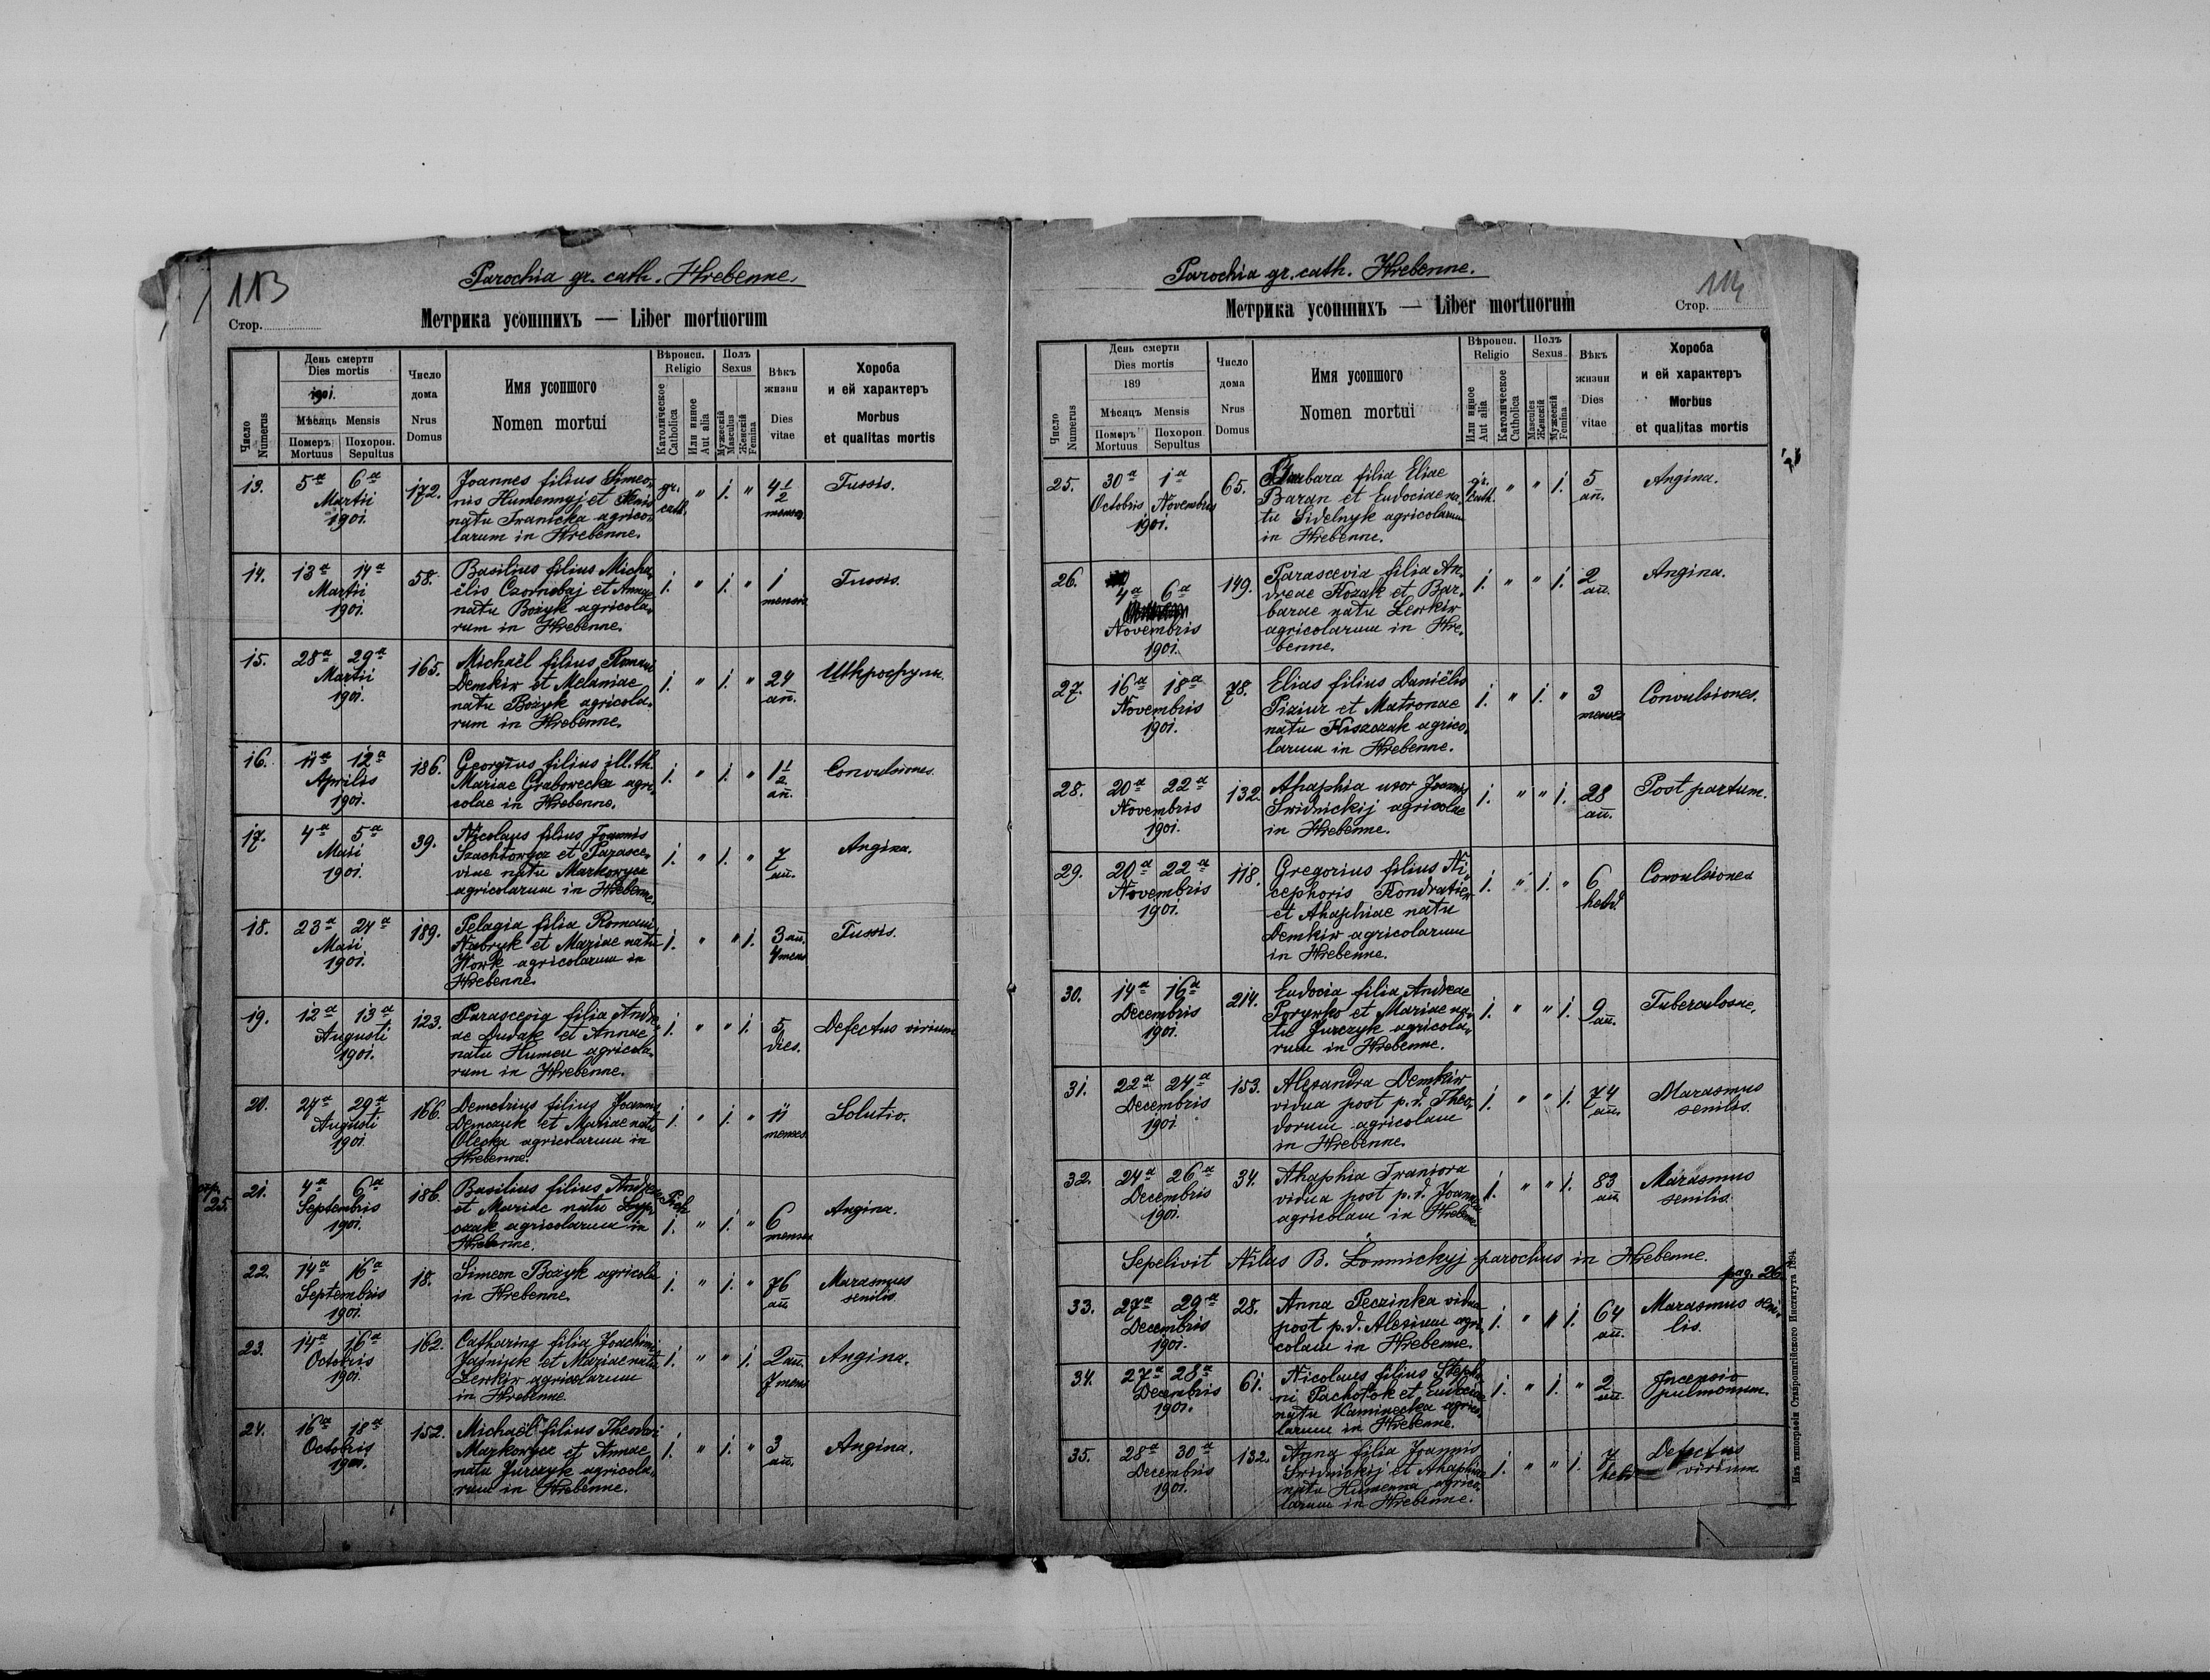 113
Parochia gr. cath. Hrebenne.
Стор.
Метрика усопшихъ — Liber mortuorum
Число Numerus
День смерти
Dies mortis
1901.
Мѣсяць Mensis
Померъ Mortuus
Похорон. Sepultus
Число дома
Nrus Domus
Имя усопшого
Nomen mortui
Вѣроисп.
Religio
Католическое Catholica
Или инное Aut alia
Полъ
Sexus
Мужескій Masculus
Женскій Femina
Вѣкъ жизни
Dies vitae
Хороба
и ей характеръ
Morbus
et qualitas mortis
13. 5ª 6ª Martii 1901. 172.
Joannes filius Simeo-
nis Humennyj et
natu Iranicka agrico-
larum in Hrebenne.
gr. cath. " 1. " 4½ menses. Tussis.
14. 13ª 14ª Martii 1901. 58.
Basilius filius Micha-
ëlis Czornobaj et Annae
natu Bożyk agricola-
rum in Hrebenne.
1. " 1. " 1 mensis Tussis.
15. 28ª 29ª Martii 1901. 165.
Michaël filius Romani
Demkiw et Melaniae
natu Bożyk agricola-
rum in Hrebenne.
1. " 1. " 24 añ.
16. 11ª 12ª Aprilis 1901. 186.
Georgius filius ill. th.
Mariae Grabowecka agri-
colae in Hrebenne.
1. " 1. " 1½ añ. Convulsiones.
17. 4ª 5ª Maii 1901. 39.
Nicolaus filius Joannis
Szachtowycz et Parasce-
viae natu Markowycz
agricolarum in Hrebenne.
1. " 1. " 7 añ. Angina.
18. 23ª 24ª Maii 1901. 189.
Pelagia filia Romani
Nabryk et Mariae natu
Work agricolarum in
Hrebenne.
1. " " 1. 3 añ. 4 mens Tussis.
19. 12ª 13ª Augusti 1901. 123.
Parascevia filia Andre-
ae Dudak et Annae
natu Humen agricola-
rum in Hrebenne.
1. " " 1. 5 dies. Defectus virium
20. 27ª 29ª Augusti 1901 166.
Demetrius filius Joannis
Demczuk et Mariae natu
Oleska agricolarum in
Hrebenne.
1. " 1. " 11 menses. Solutio.
25.
21. 4ª 6ª Septembris 1901. 186.
Basilius filius Andreae
et Mariae natu
czak agricolarum in
Hrebenne.
1. " 1. " 6 menses Angina.
22. 14ª 16ª Septembris 1901. 18.
Simeon Bożyk agricola
in Hrebenne.
1. " 1. " 76 añ Marasmus senilis.
23. 14ª 16ª Octobris 1901. 162.
Catharina filia Joachimi
Jasniuk et Mariae natu
Lewkiw agricolarum
in Hrebenne.
1. " " 1. 2 añ. 7 mens Angina.
24. 16ª 18ª Octobris 1901. 152.
Michaël filius Theodori
Markowycz et Annae
natu Jurczyk agricola-
rum in Hrebenne.
1. " 1. " 3 añ. Angina.
Parochia gr. cath. Hrebenne.
114
Стор.
Метрика усопшихъ — Liber mortuorum
Число Numerus
День смерти
Dies mortis
189
Мѣсяць Mensis
Померъ Mortuus
Похорон Sepultus
Число дома
Nrus Domus
Имя усопшого
Nomen mortui
Вѣроисп.
Religio
Или инное Aut alia
Католическое Catholica
Полъ
Sexus
Mascules
Женскій
Мужескій
Femina
Вѣкъ жизни
Dies vitae
Хороба
и ей характеръ
Morbus
et qualitas mortis
25. 30ª Octobris 1ª Novembris 1901. 65.
Barbara filia Eliae
Baran et Eudociae na-
tu Sidelnyk agricolarum
in Hrebenne.
gr. cath. " " 1. 5 añ. Angina.
26. 4ª 6ª Novembris 1901. 149.
Parascevia filia An-
dreae Kozak et Bar-
barae natu Lewkiw
agricolarum in Hre-
benne.
1. " " 1. 2 añ. Angina.
27. 16ª 18ª Novembris 1901. 78.
Elias filius Daniëlis
Piziur et Matronae
natu Kiszczak agrico-
larum in Hrebenne.
1. " 1. " 3 menses Convulsiones.
28. 20ª 22ª Novembris 1901. 132.
Ahaphia uxor Joannis
Swidnickij agricolae
in Hrebenne.
1. " " 1. 28 añ. Post partum.
29. 20ª 22ª Novembris 1901. 118.
Gregorius filius Ni-
cephoris Kondratiew
et Ahaphiae natu
Demkiw agricolarum
in Hrebenne.
1. " 1. " 6 hebd. Convulsiones
30. 14ª 16ª Decembris 1901. 214.
Eudocia filia Andreae
Porywko et Mariae na-
tu Jurczyk agricola-
rum in Hrebenne.
1. " " 1. 9 añ. Tuberculosae.
31. 22ª 24ª Decembris 1901 153.
Alexandra Demkiw
vidua post p. d. Theo-
dorum agricolam
in Hrebenne.
1. " " 1. 74 añ. Marasmus senilis.
32. 24ª 26ª Decembris 1901. 34.
Ahaphia Iwaniora
vidua post p. d. Joannem
agricolam in Hrebenne.
1. " " 1. 83 añ Marasmus senilis.
Sepelivit Nilus B. Łomnickyj parochus in Hrebenne.
pag. 26.
33. 27ª 29ª Decembris 1901. 28.
Anna Peczinka vidua
post p. d. Alexium agri-
colam in Hrebenne.
1. " " 1. 64 añ. Marasmus seni-
lis.
34. 27ª 28ª Decembris 1901. 61.
Nicolaus filius Stepha-
ni Pachołok et Eudociae
natu Kaminecka agrico-
larum in Hrebenne.
1. " 1. " 2 añ. Incensio pulmonum.
35. 28ª 30ª Decembris 1901. 132.
Anna filia Joannis
Swidnickij et Ahaphiae
natu Humenna agrico-
larum in Hrebenne.
1. " " 1. 7 hebd Defectus virium.
Изъ типографіи Ставропигійского Института 1894.